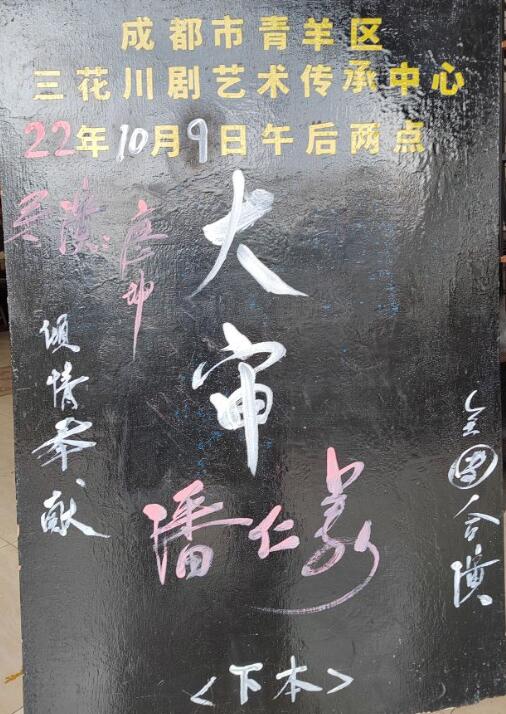 成都市青羊区
三花川剧艺术传承中心
22年10月9日午后两点
主演:唐坤
倾情奉献
大审
潘仁美
全团合演
<下本>